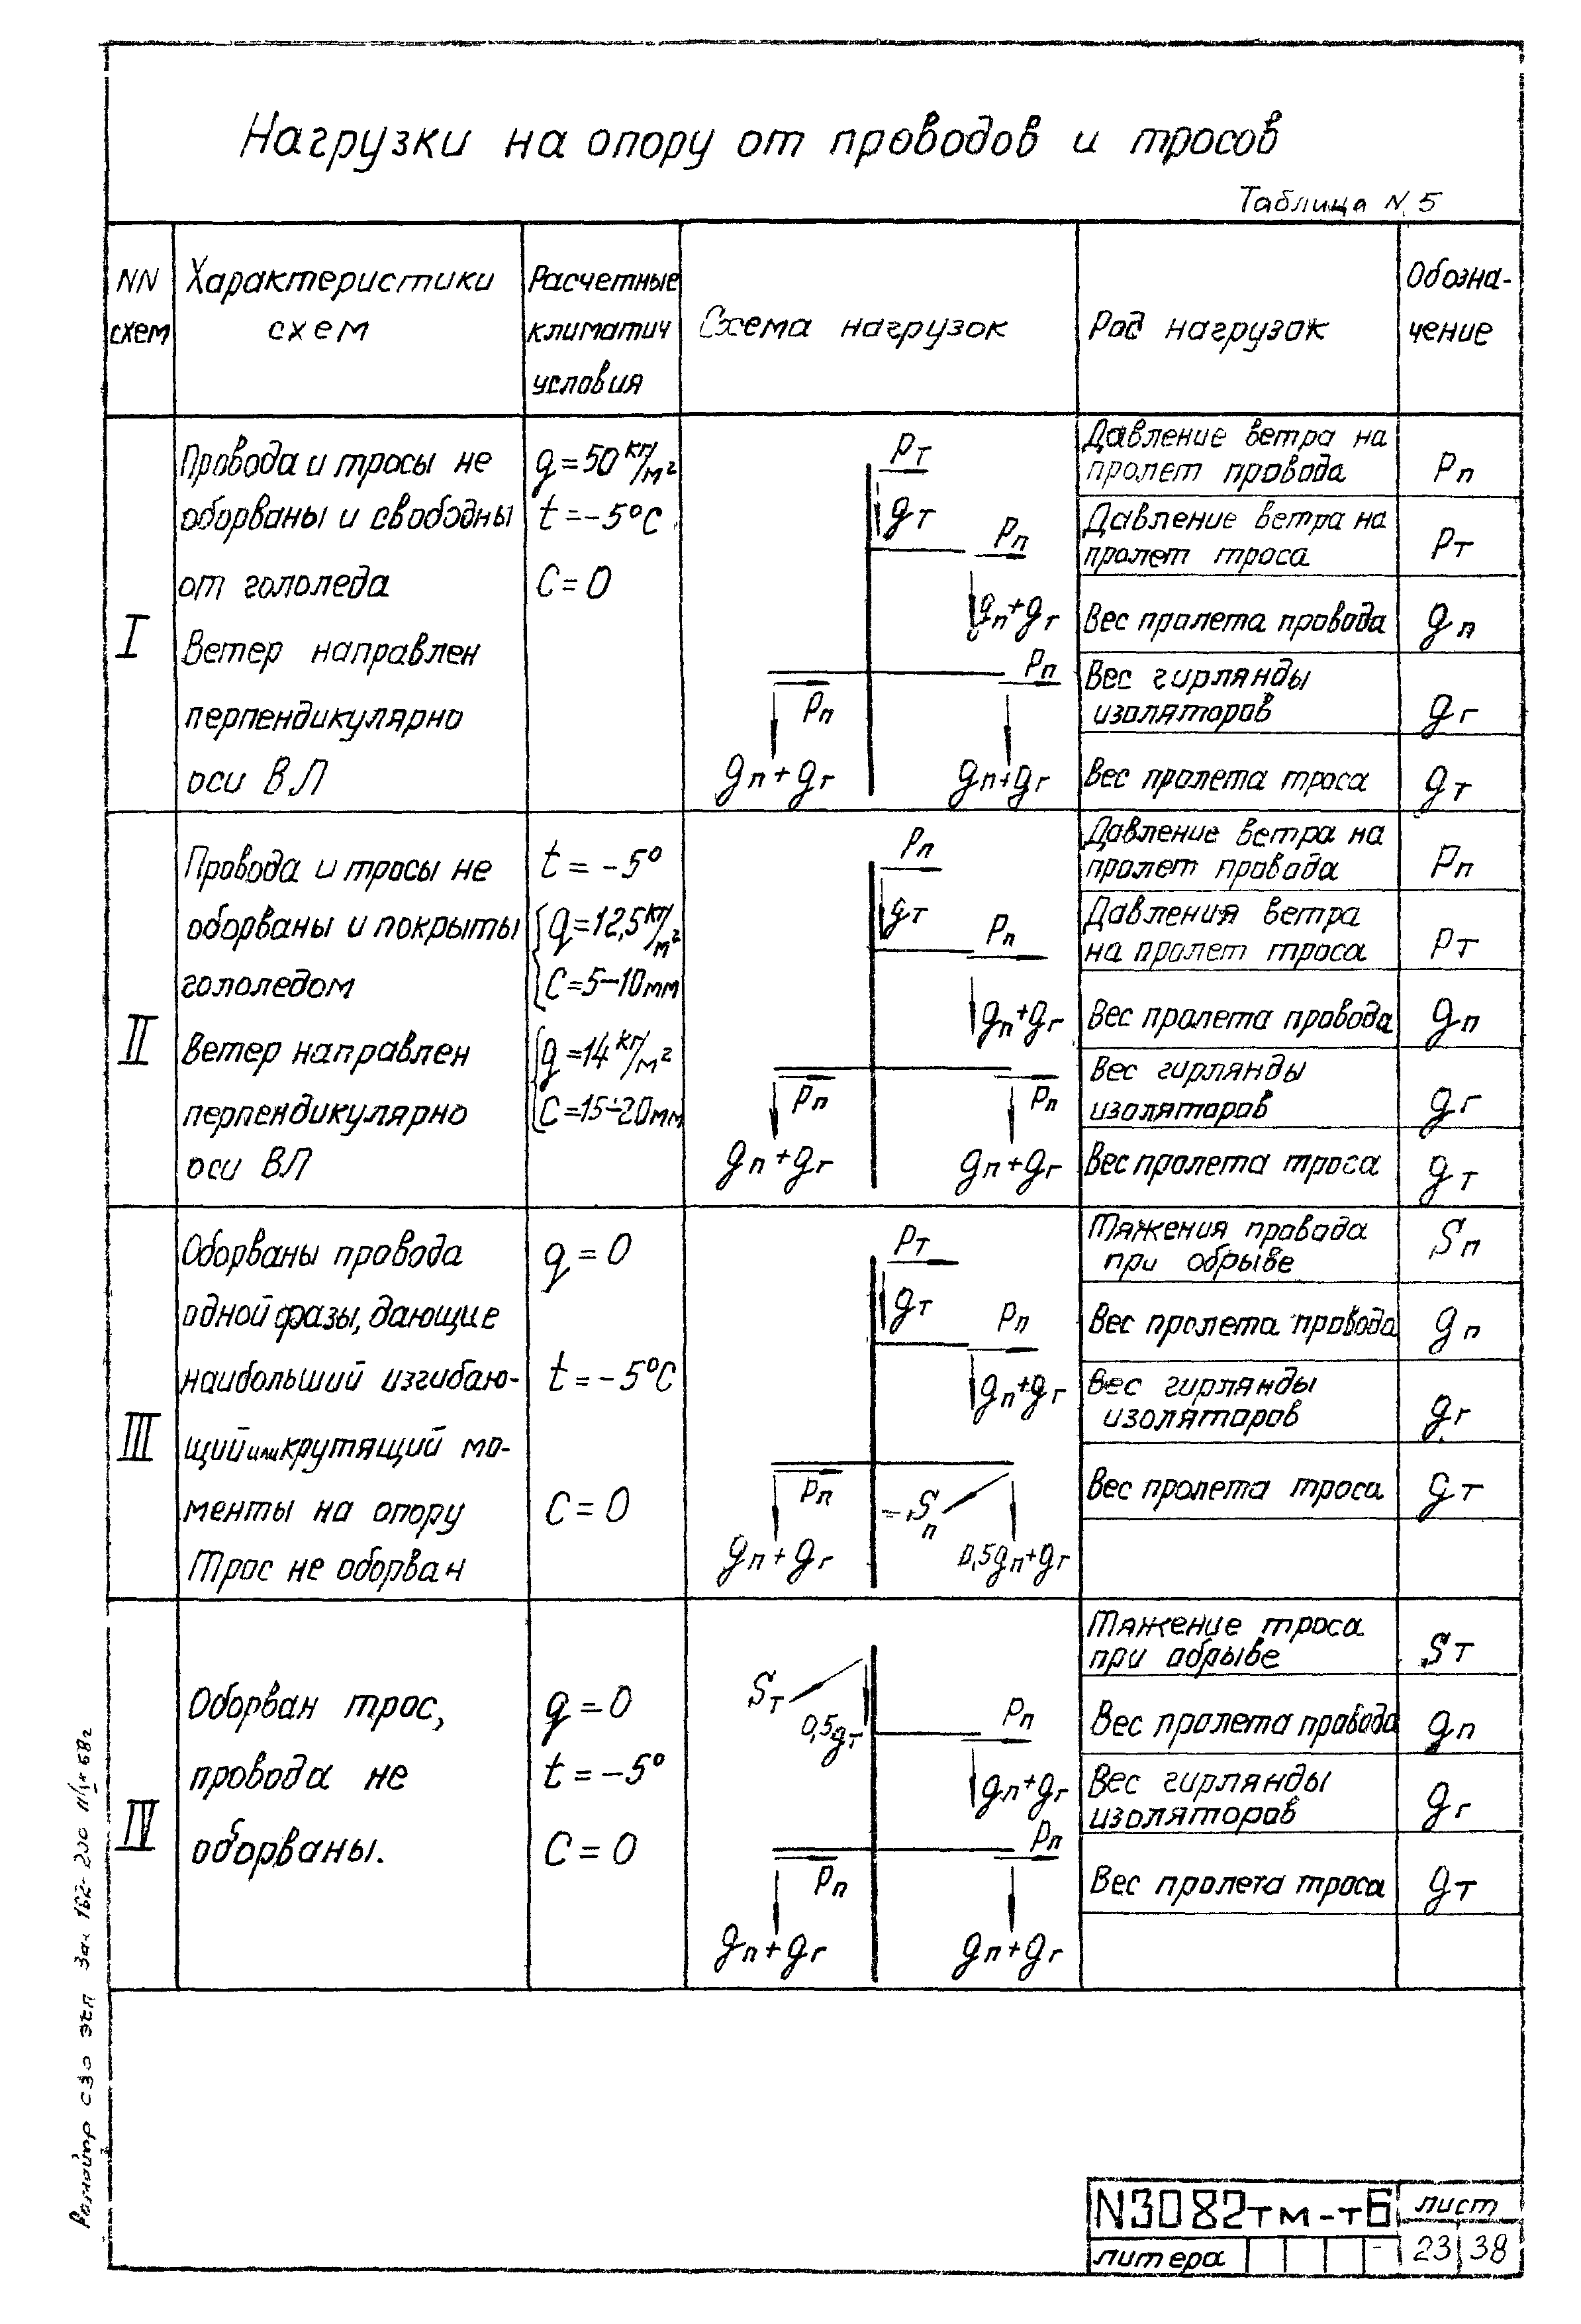 Нагрузки на опору от проводов и тросов
Таблица N 5
NN
схем
Характеристики
схем
Расчетные
климатич
условия
Схема нагрузок
Род нагрузок
Обозна-
чение
I
Провода и тросы не
оборваны и свободны
от гололеда
Ветер направлен
перпендикулярно
оси ВЛ
q=50 кг/м²
t=-5°С
С=0
Pт
gт
Pп
gп+gг
Pп
Pп
gп+gг
gп+gг
Давление ветра на
пролет провода
Pп
Давление ветра на
пролет троса
Pт
Вес пролета провода
gп
Вес гирлянды
изоляторов
gг
Вес пролета троса
gт
II
Провода и тросы не
оборваны и покрыты
гололедом
Ветер направлен
перпендикулярно
оси ВЛ
t=-5°
q=12,5 кг/м²
С=5-10мм
q=14 кг/м²
С=15÷20мм
Pп
gт
Pп
gп+gг
Pп
Pп
gп+gг
gп+gг
Давление ветра на
пролет провода
Pп
Давления ветра
на пролет троса
Pт
Вес пролета провода
gп
Вес гирлянды
изоляторов
gг
Вес пролета троса
gт
III
Оборваны провода
одной фазы, дающие
наибольший изгибаю-
щий или крутящий мо-
менты на опору
Трос не оборван
q=0
t=-5°С
С=0
Pт
gт
Pп
gп+gг
Pп
Sп
gп+gг
0,5gп+gг
Тяжения провода
при обрыве
Sп
Вес пролета провода
gп
Вес гирлянды
изоляторов
gг
Вес пролета троса
gт
IV
Оборван трос,
провода не
оборваны.
q=0
t=-5°
С=0
Sт
0,5gт
Pп
gп+gг
Pп
Pп
gп+gг
gп+gг
Тяжение троса
при обрыве
Sт
Вес пролета провода
gп
Вес гирлянды
изоляторов
gг
Вес пролета троса
gт
СЗО ЭСП Зак 162-200
N3082тм-т6
лист
литера
23 38